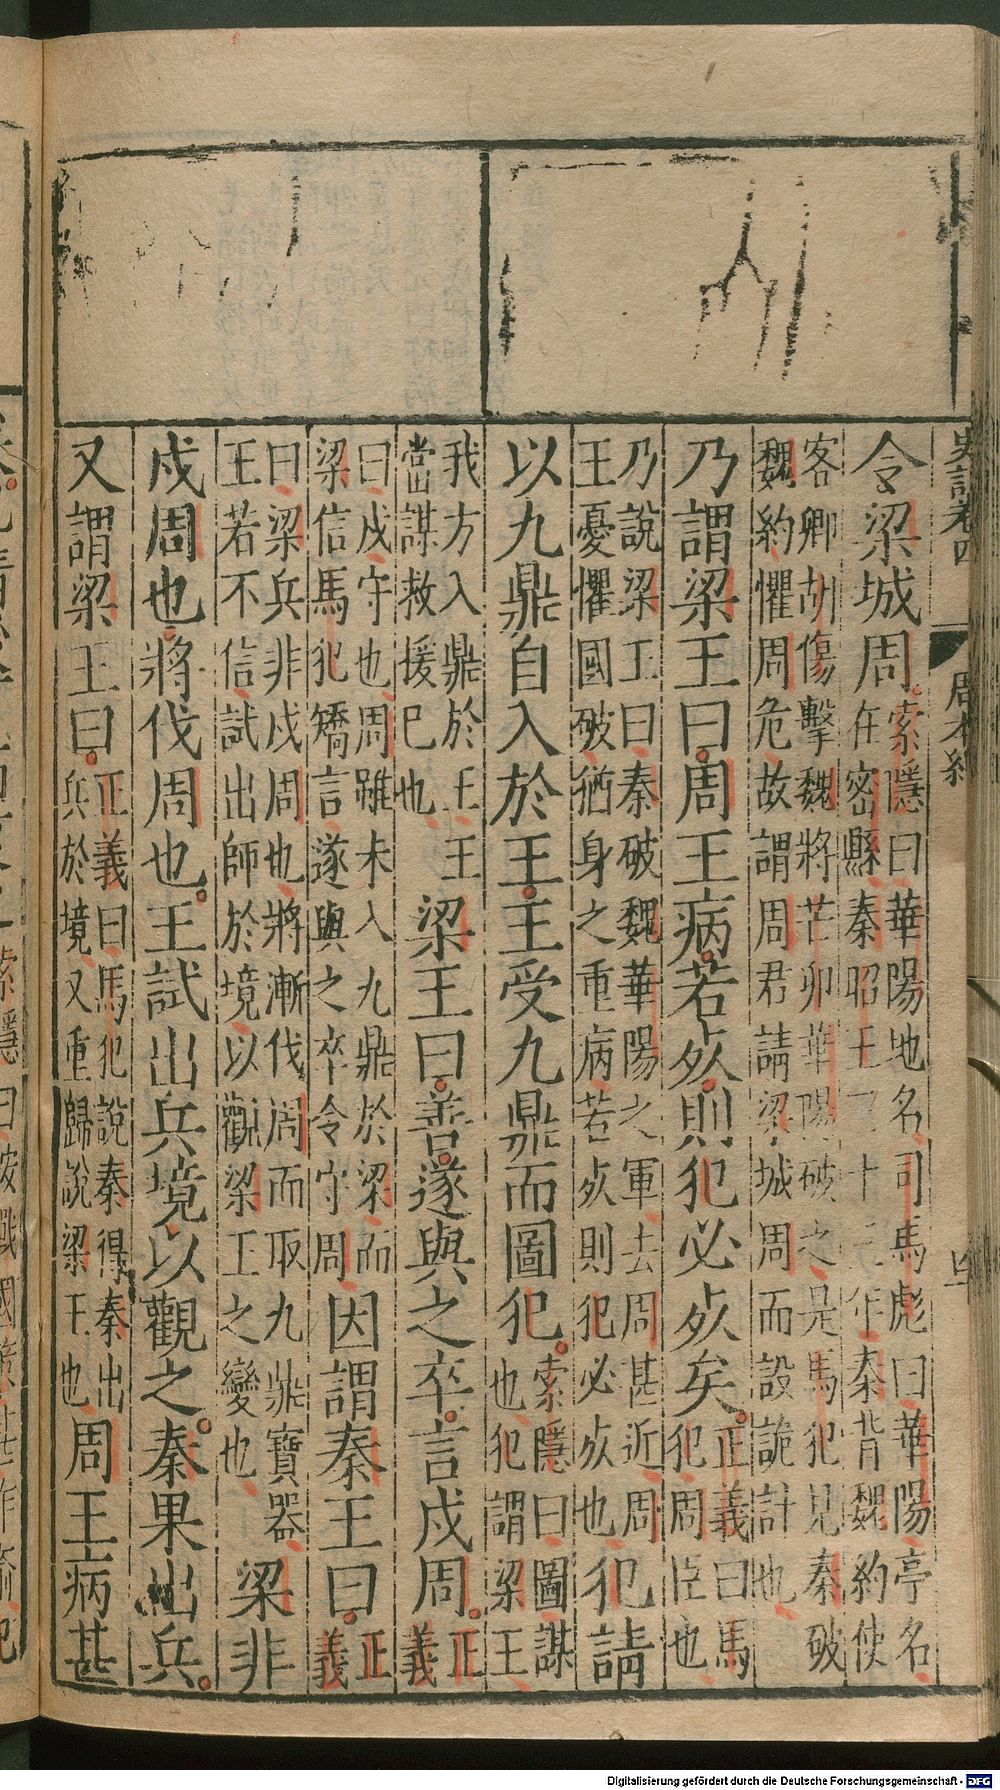 史記卷四 周本紀
令梁城周索隱曰華陽地名司馬彪曰華陽亭名
在密縣秦昭王三十三年秦背魏約使
客卿胡傷擊魏將芒卯華陽破之是馬犯見秦破
魏約懼周危故謂周君請梁城周而設詭計也
乃謂梁王曰周王病若死則犯必死矣正義曰馬
犯周臣也
乃說梁王曰秦破魏華陽之軍去周甚近周
王憂懼國破猶身之重病若死則犯必死也犯請
以九鼎自入於王王受九鼎而圖犯索隱曰圖謀
也犯謂梁王
我方入鼎於王王
當謀救援已也梁王曰善遂與之卒言戍周正
義
曰戍守也周雖未入九鼎於梁而
梁信馬犯矯言遂與之卒令守周因謂秦王曰正
義
曰梁兵非戍周也將漸伐周而取九鼎寶器
王若不信試出師於境以觀梁王之變也梁非
戍周也將伐周也王試出兵境以觀之秦果出兵
又謂梁王曰正義曰馬犯說秦得秦出
兵於境又重歸說梁王也周王病甚
Digitalisierung gefördert durch die Deutsche Forschungsgemeinschaft - DFG